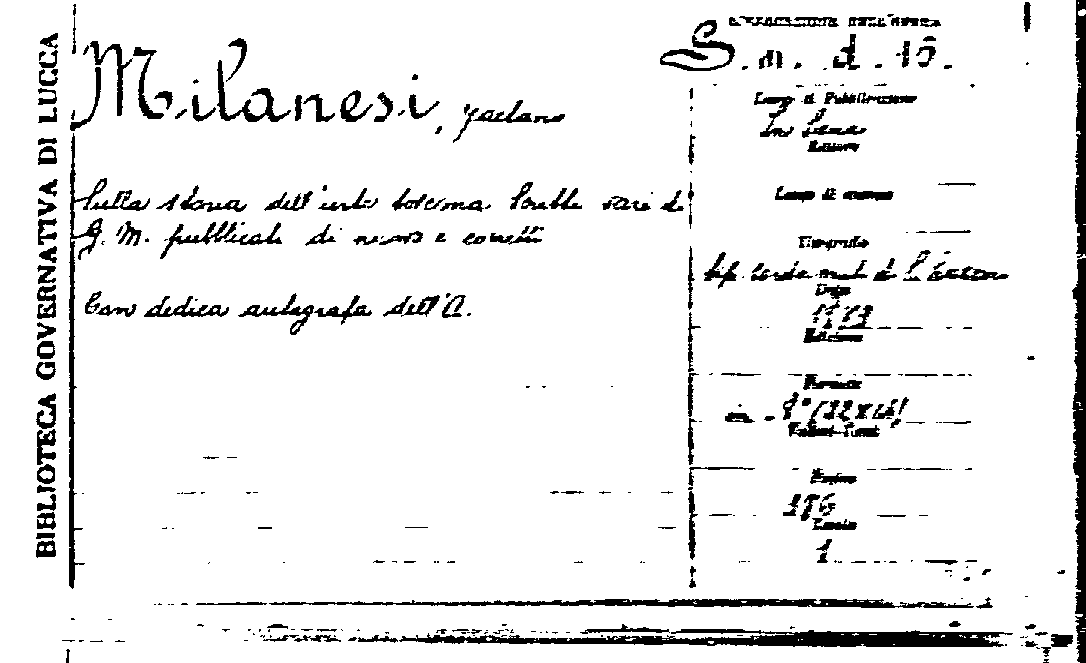 BIBLIOTECA GOVERNATIVA DI LUCCA
Milanesi, Gaetano
Sulla storia dell'arte toscana Scritti vari di
G. M. pubblicati di nuovo e corretti
Con dedica autografa dell'A.
COLLOCAZIONE DELL'OPERA
S. m. d. 15.
Luogo di Pubblicazione
In Siena
Editore
Luogo di stampa
Tipografia
tip. sordo muti di L.
Data
1873
Edizione
Formato
in - 8° (22 x
Volumi-Tomi
Pagine
Tavole
1